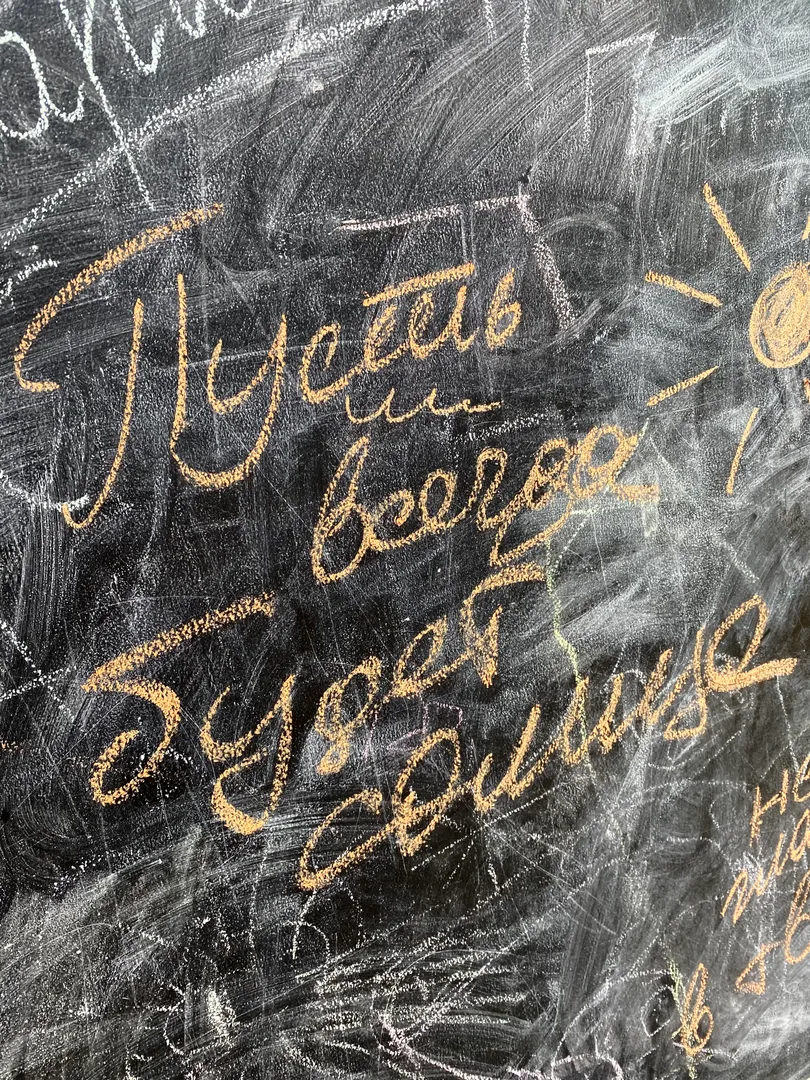 Пусть
всегда
будет
солнце